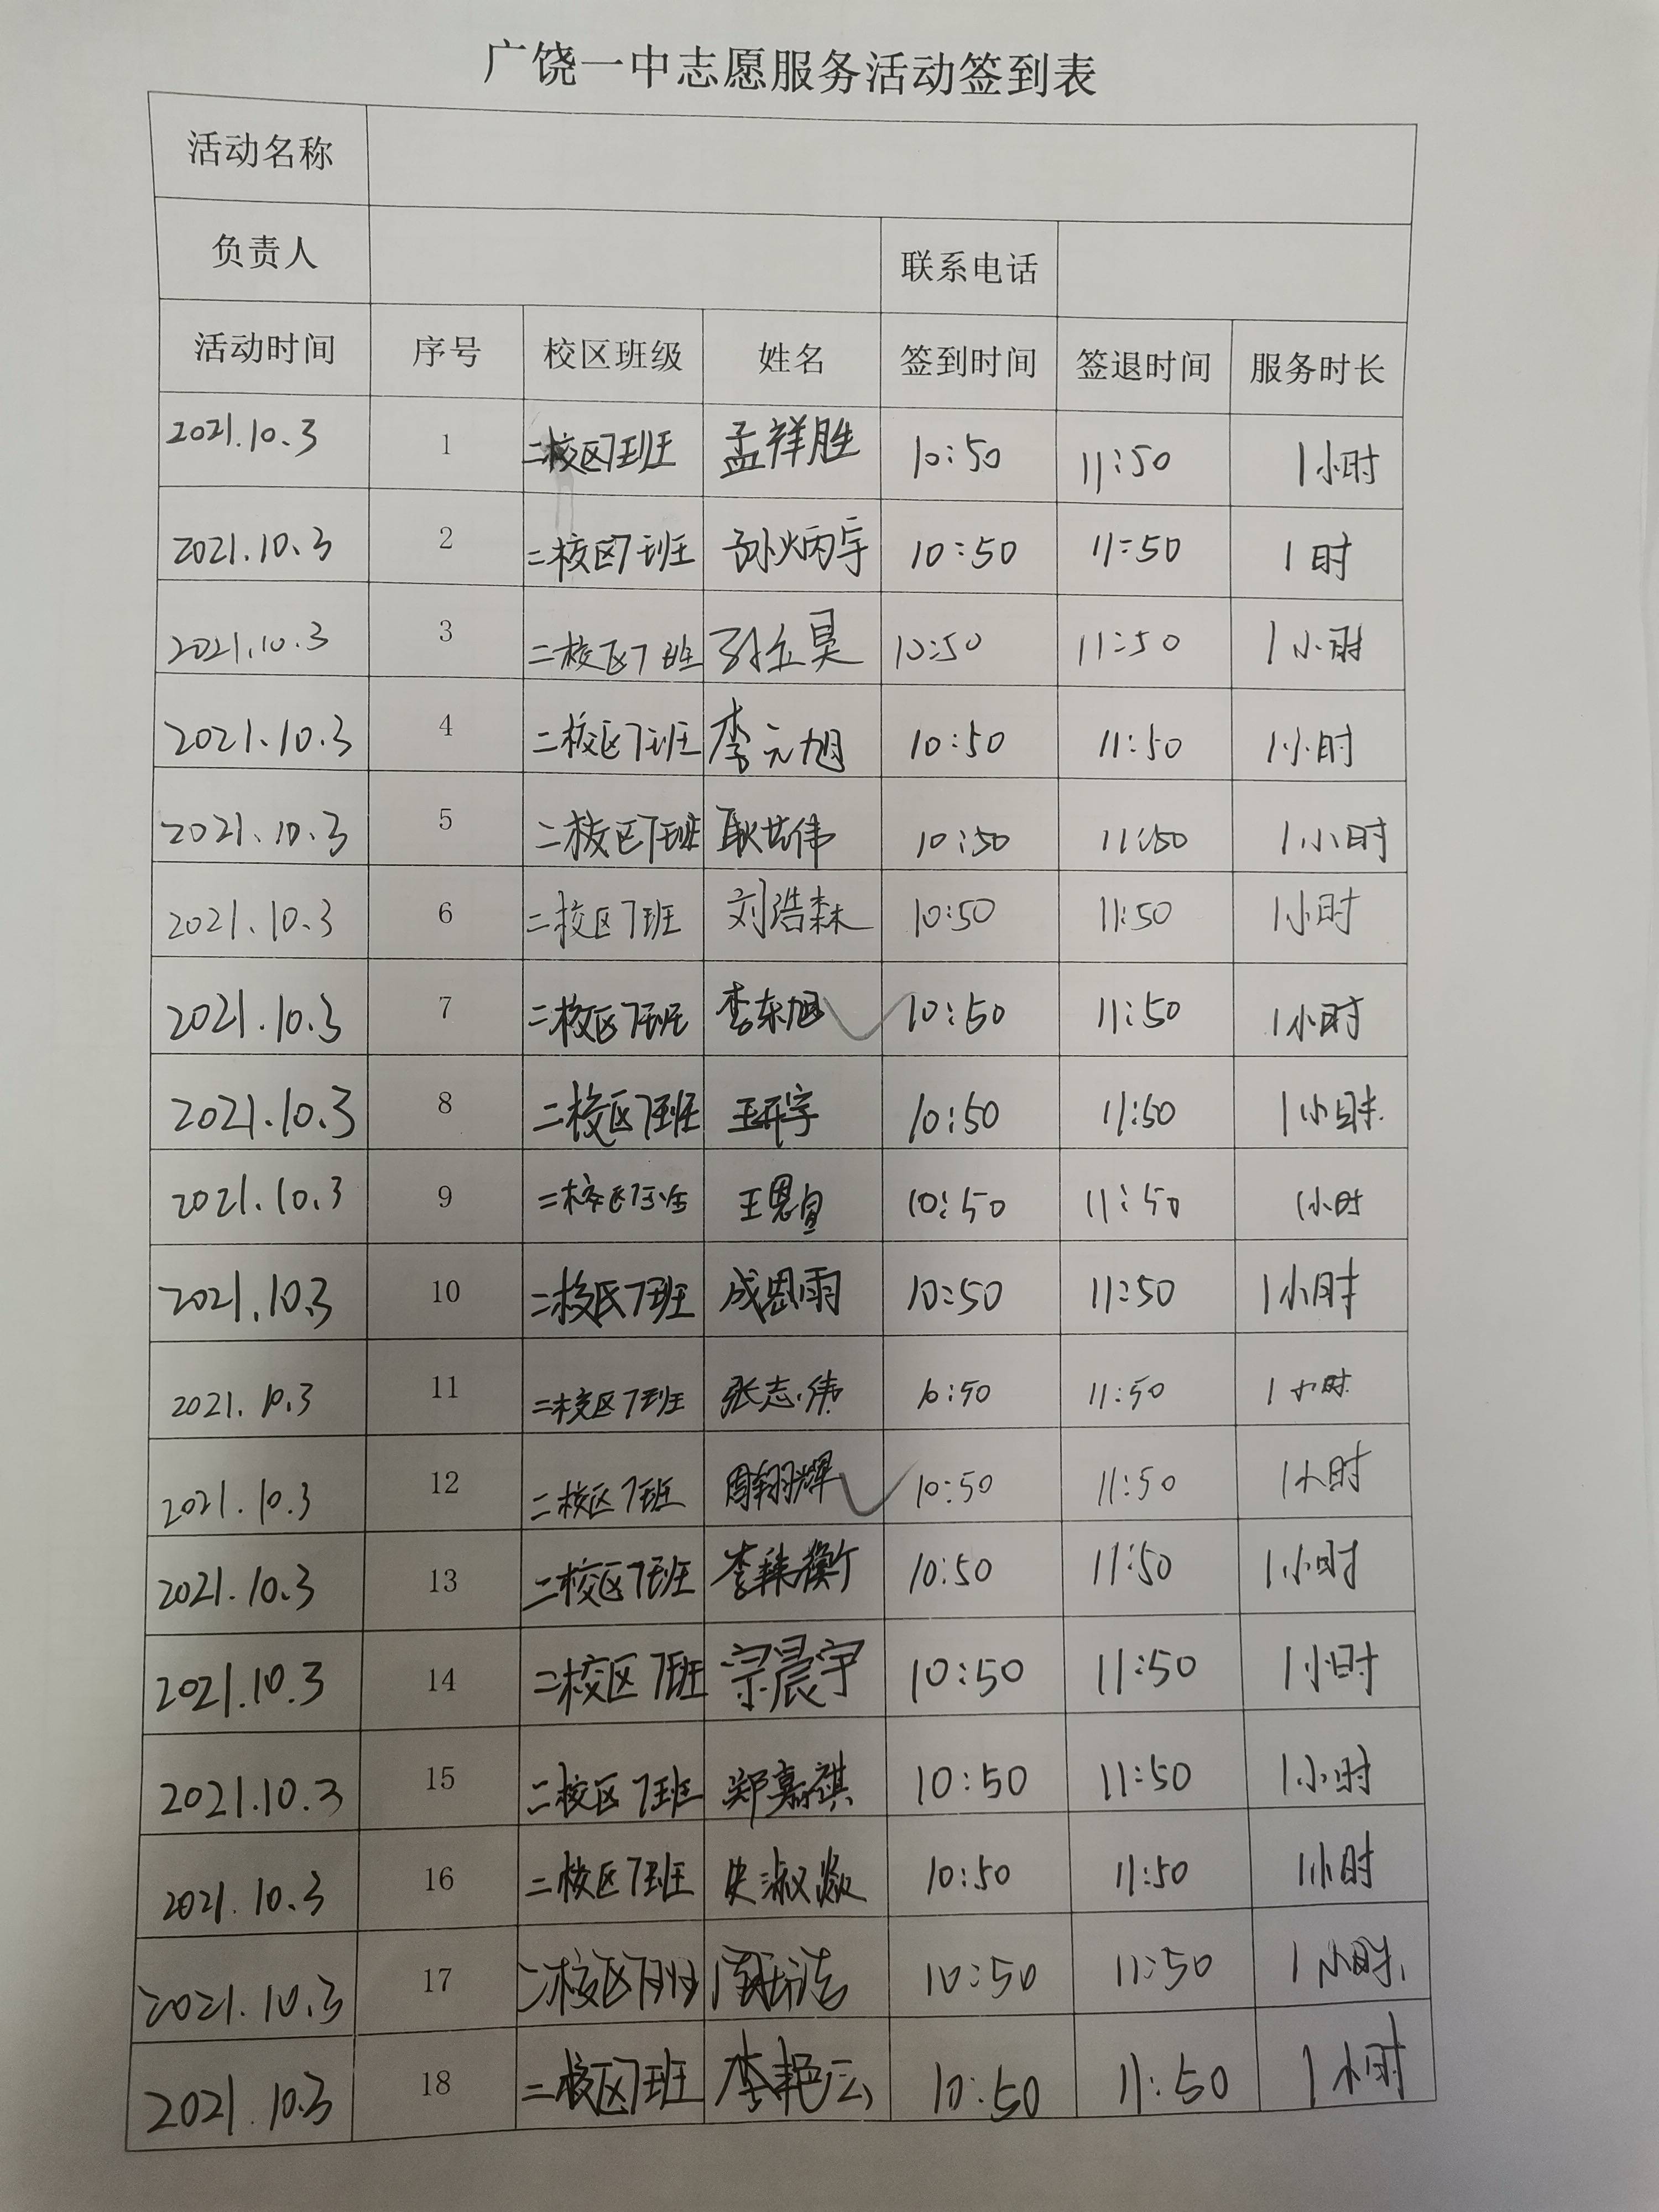 广饶一中志愿服务活动签到表
活动名称
负责人 联系电话
活动时间 序号 校区班级 姓名 签到时间 签退时间 服务时长
2021.10.3 1 二校区7班 孟祥胜 10:50 11:50 1小时
2021.10.3 2 二校区7班 孙炳宇 10:50 11:50 1时
2021.10.3 3 二校区7班 孙立昊 10:50 11:50 1小时
2021.10.3 4 二校区7班 李元旭 10:50 11:50 1小时
2021.10.3 5 二校区7班 10:50 11:50 1小时
2021.10.3 6 二校区7班 刘浩森 10:50 11:50 1小时
2021.10.3 7 二校区7班 李东旭 10:50 11:50 1小时
2021.10.3 8 二校区7班 王开宇 10:50 11:50 1小时
2021.10.3 9 二校区7班 王恩宣 10:50 11:50 1小时
2021.10.3 10 二校区7班 成恩雨 10:50 11:50 1小时
2021.10.3 11 二校区7班 张志伟 10:50 11:50 1小时
2021.10.3 12 二校区7班 周翔辉 10:50 11:50 1小时
2021.10.3 13 二校区7班 10:50 11:50 1小时
2021.10.3 14 二校区7班 宗晨宇 10:50 11:50 1小时
2021.10.3 15 二校区7班 郑嘉祺 10:50 11:50 1小时
2021.10.3 16 二校区7班 10:50 11:50 1小时
2021.10.3 17 二校区7班 10:50 11:50 1小时
2021.10.3 18 二校区7班 李艳云 10:50 11:50 1小时